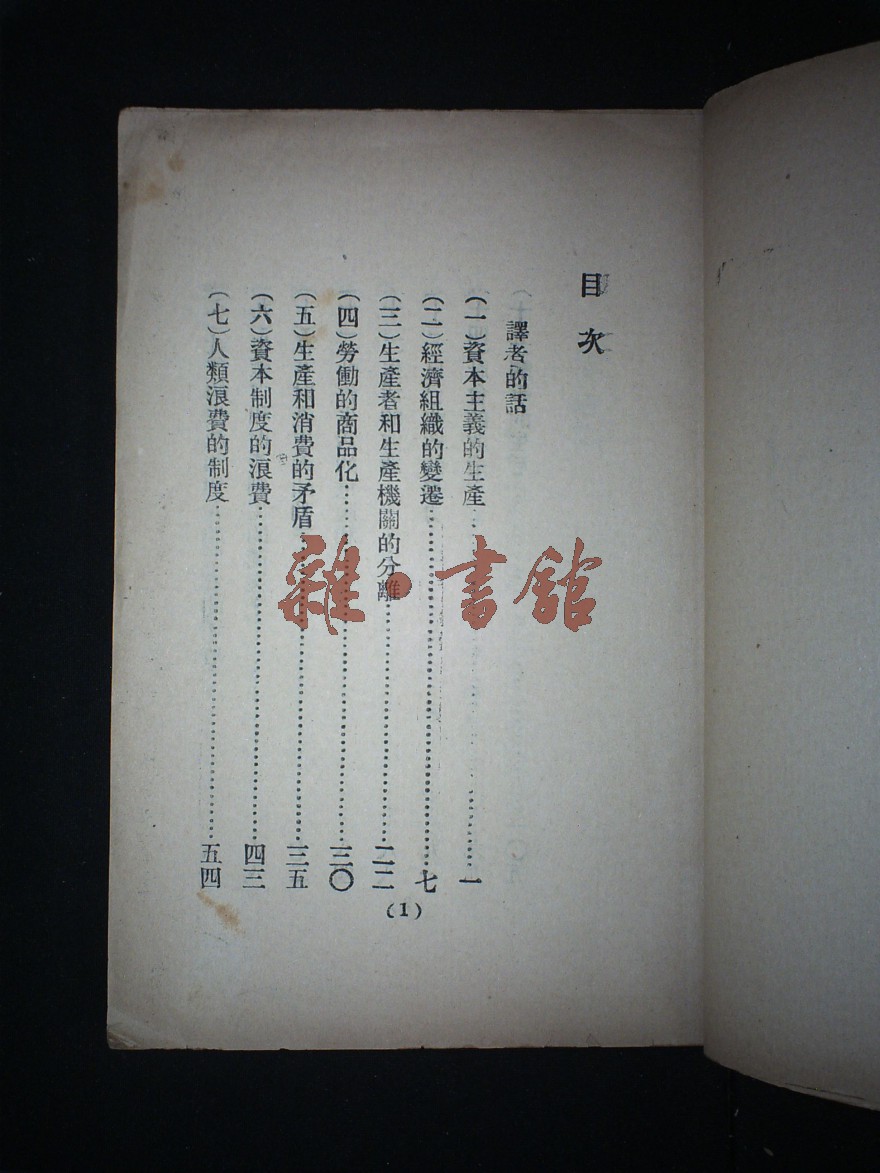 目次
譯者的話
(一)資本主義的生產……一
(二)經濟組織的變遷……七
(三)生產者和生產機關的分離……二二
(四)勞働的商品化……三〇
(五)生產和消費的矛盾……三五
(六)資本制度的浪費……四三
(七)人類浪費的制度……五四
(1)
雜·書館